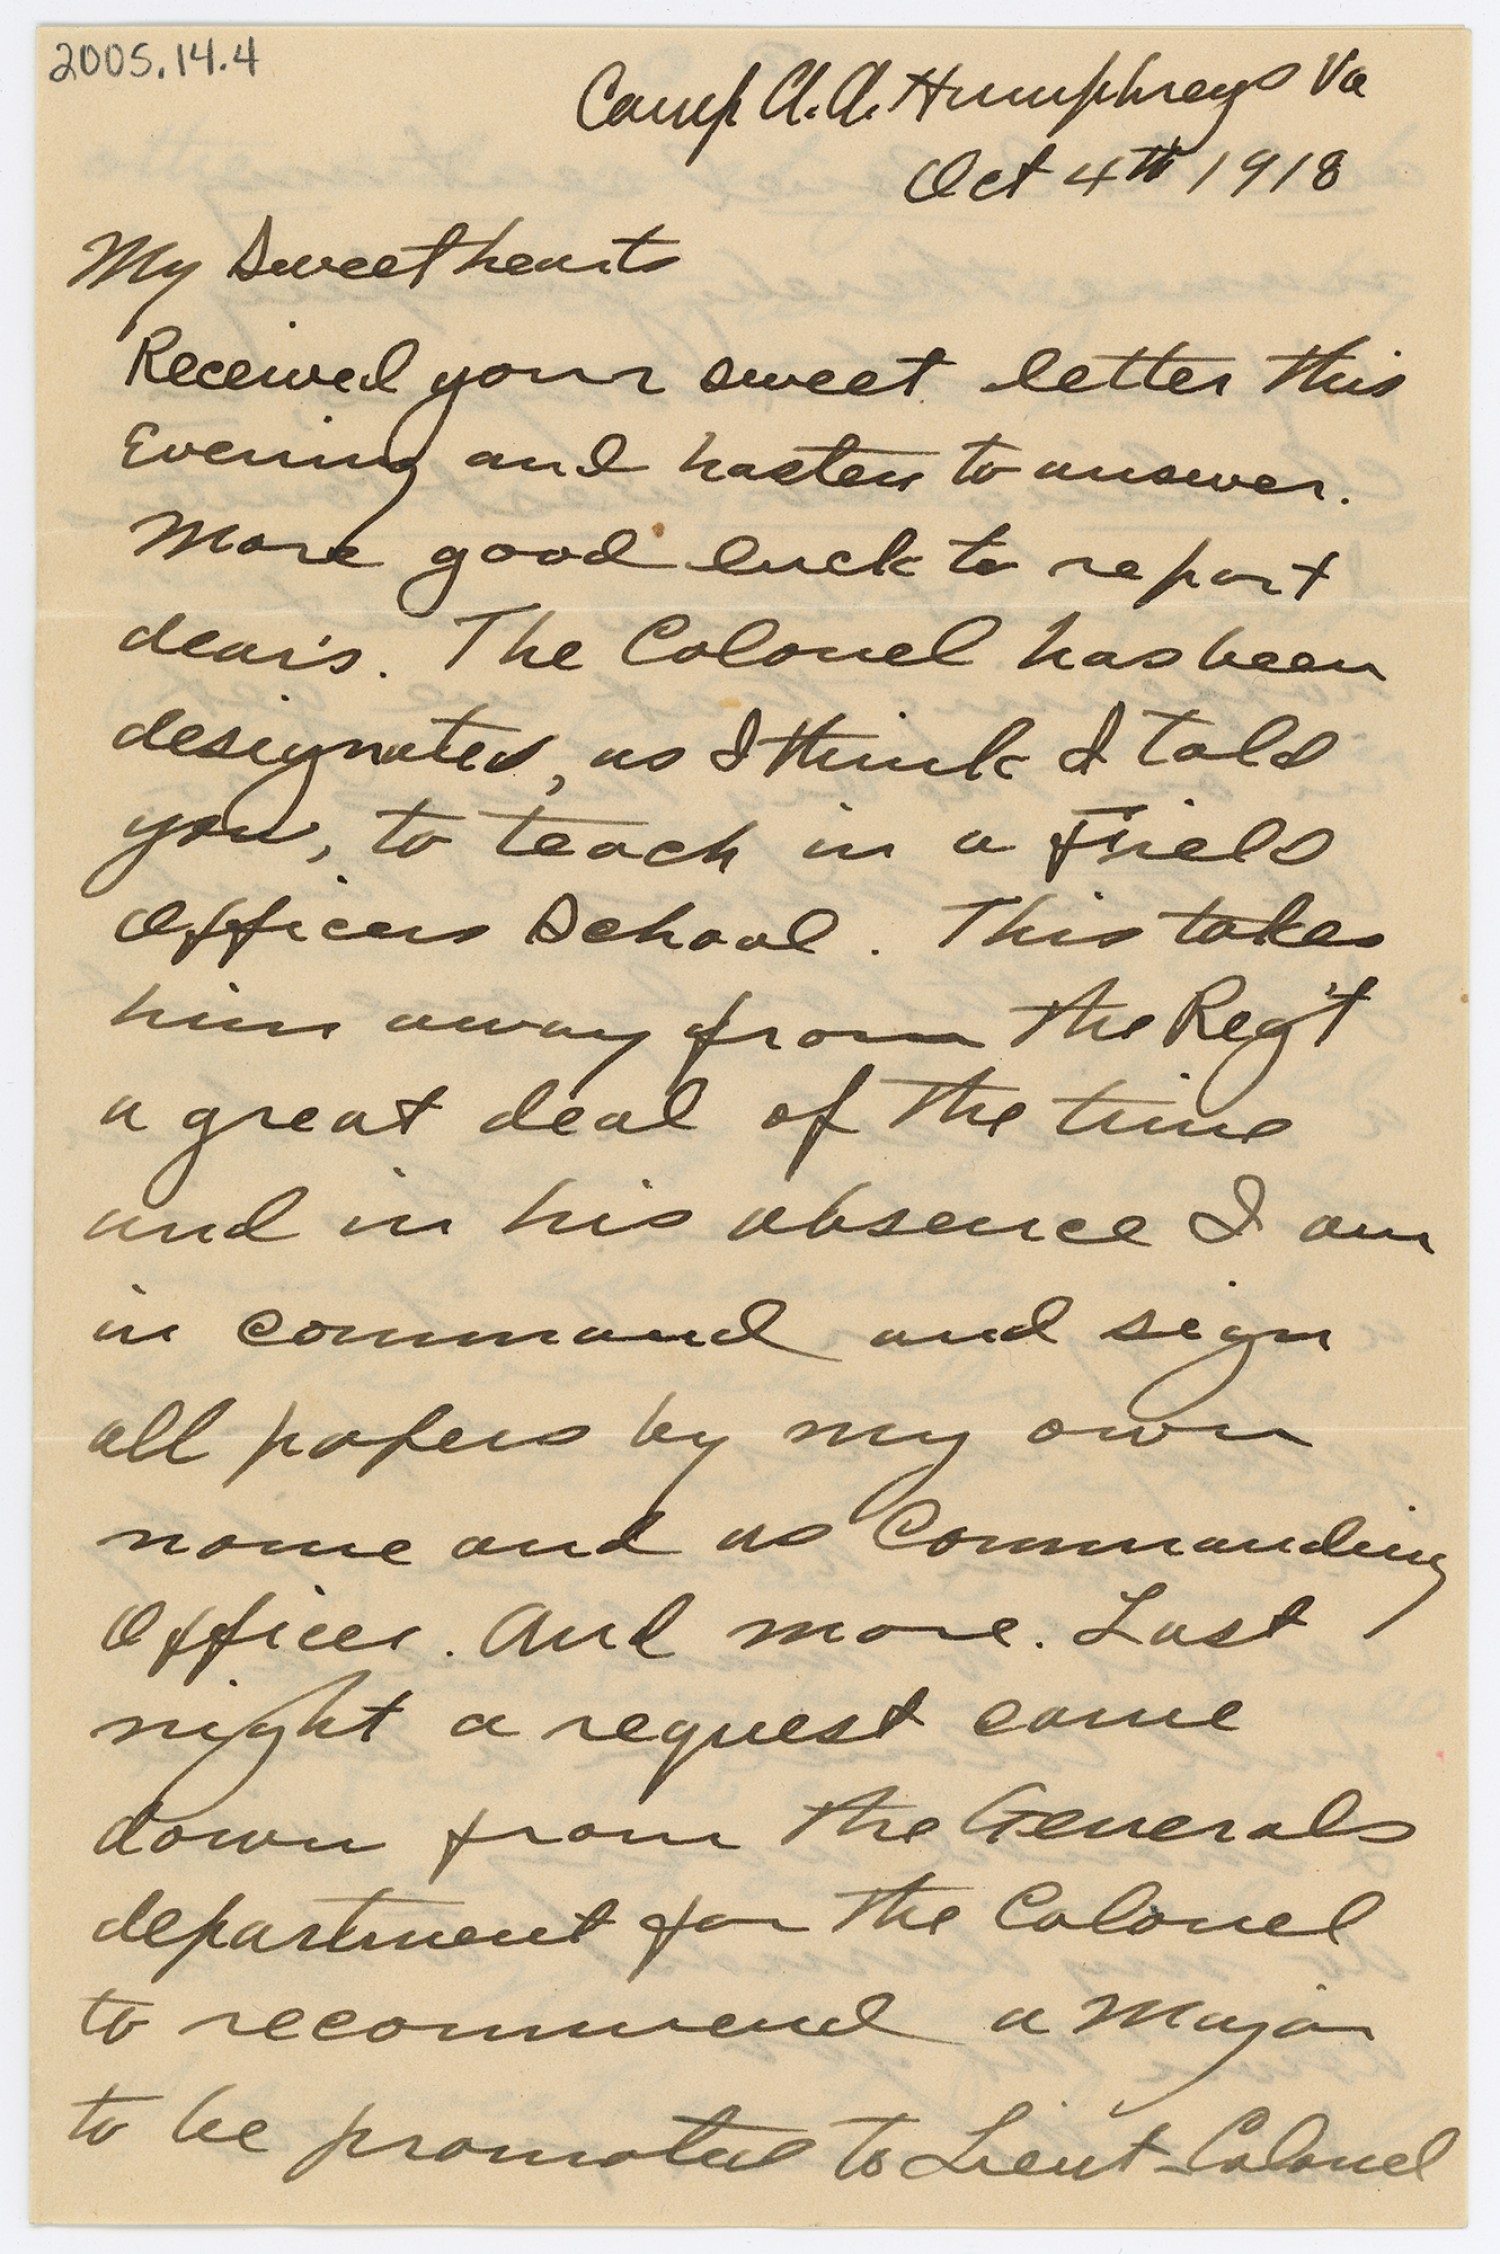 2005.14.4
Camp A.A. Humphreys Va
Oct 4th 1918
My Sweethearts
Received your sweet letter this
Evening and hasten to answer.
More good luck to report
dears. The Colonel has been
designated, as I think I told
you, to teach in a Field
Officers School. This takes
him away from the Reg't
a great deal of the time
and in his absence I am
in command and sign
all papers by my own
name and as Commanding
Officer. And more. Last
night a request came
down from the Generals
department for the Colonel
to recommend a Major
to be promoted to Lieut-Colonel